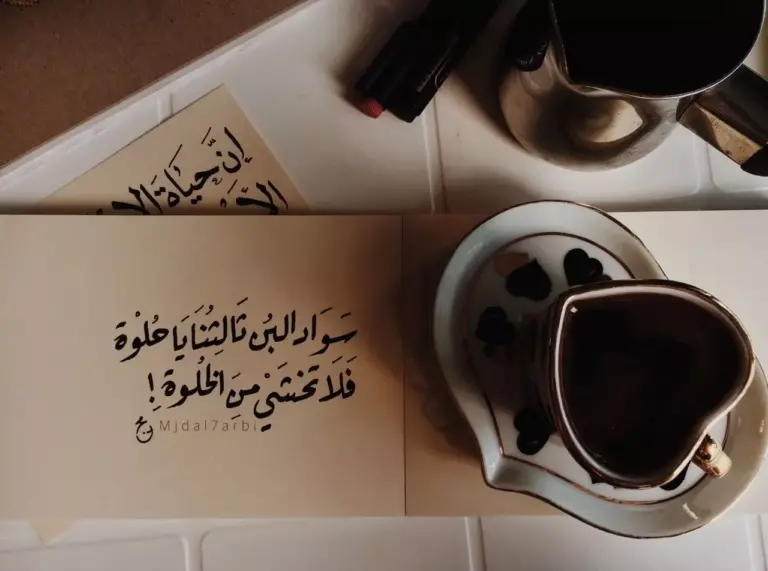 إنَّ حَيَاةَ الا
سَوَاد البُن ثَالِثُنَا يَا حُلوْة
فَلَا تَخشَيْ مِنَ الخُلْوَة !
Mjdal7arbi